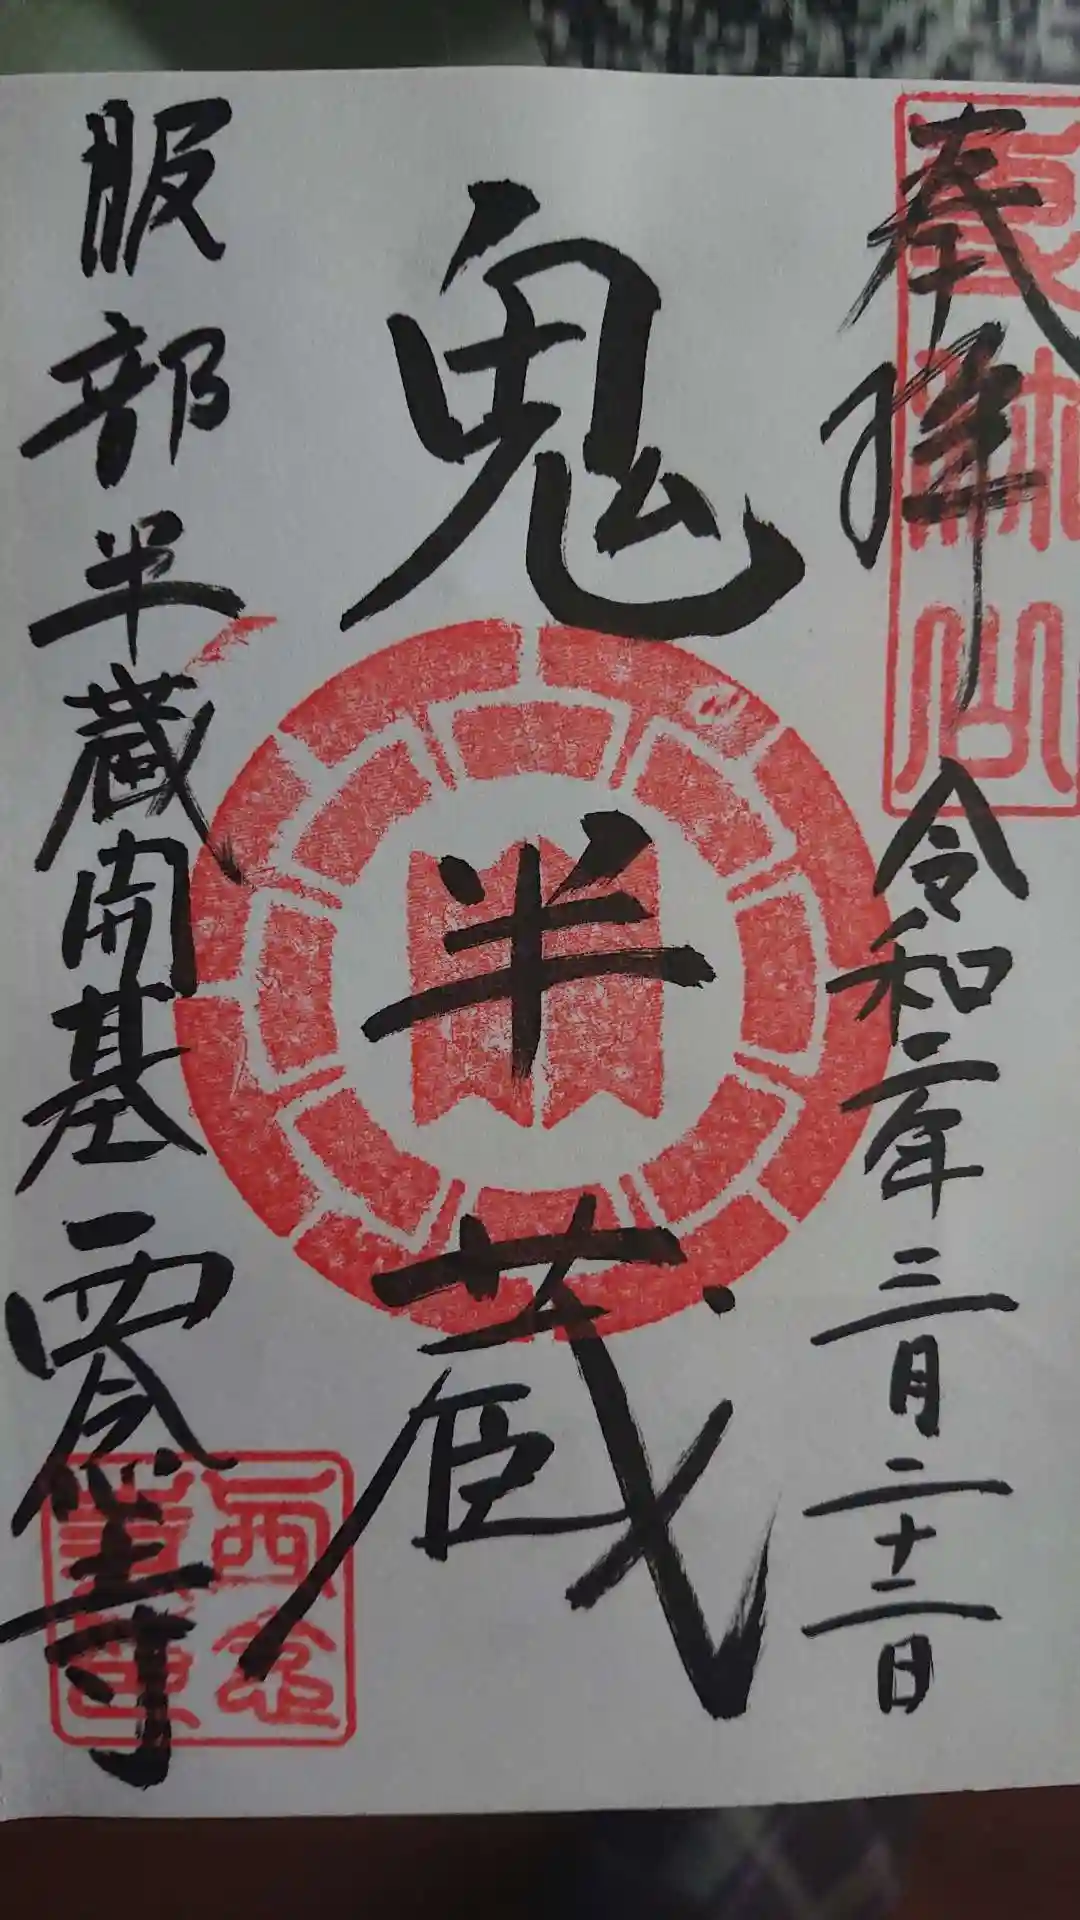 奉拝
令和二年三月二十二日
鬼半蔵
服部半蔵開基西念寺
西念